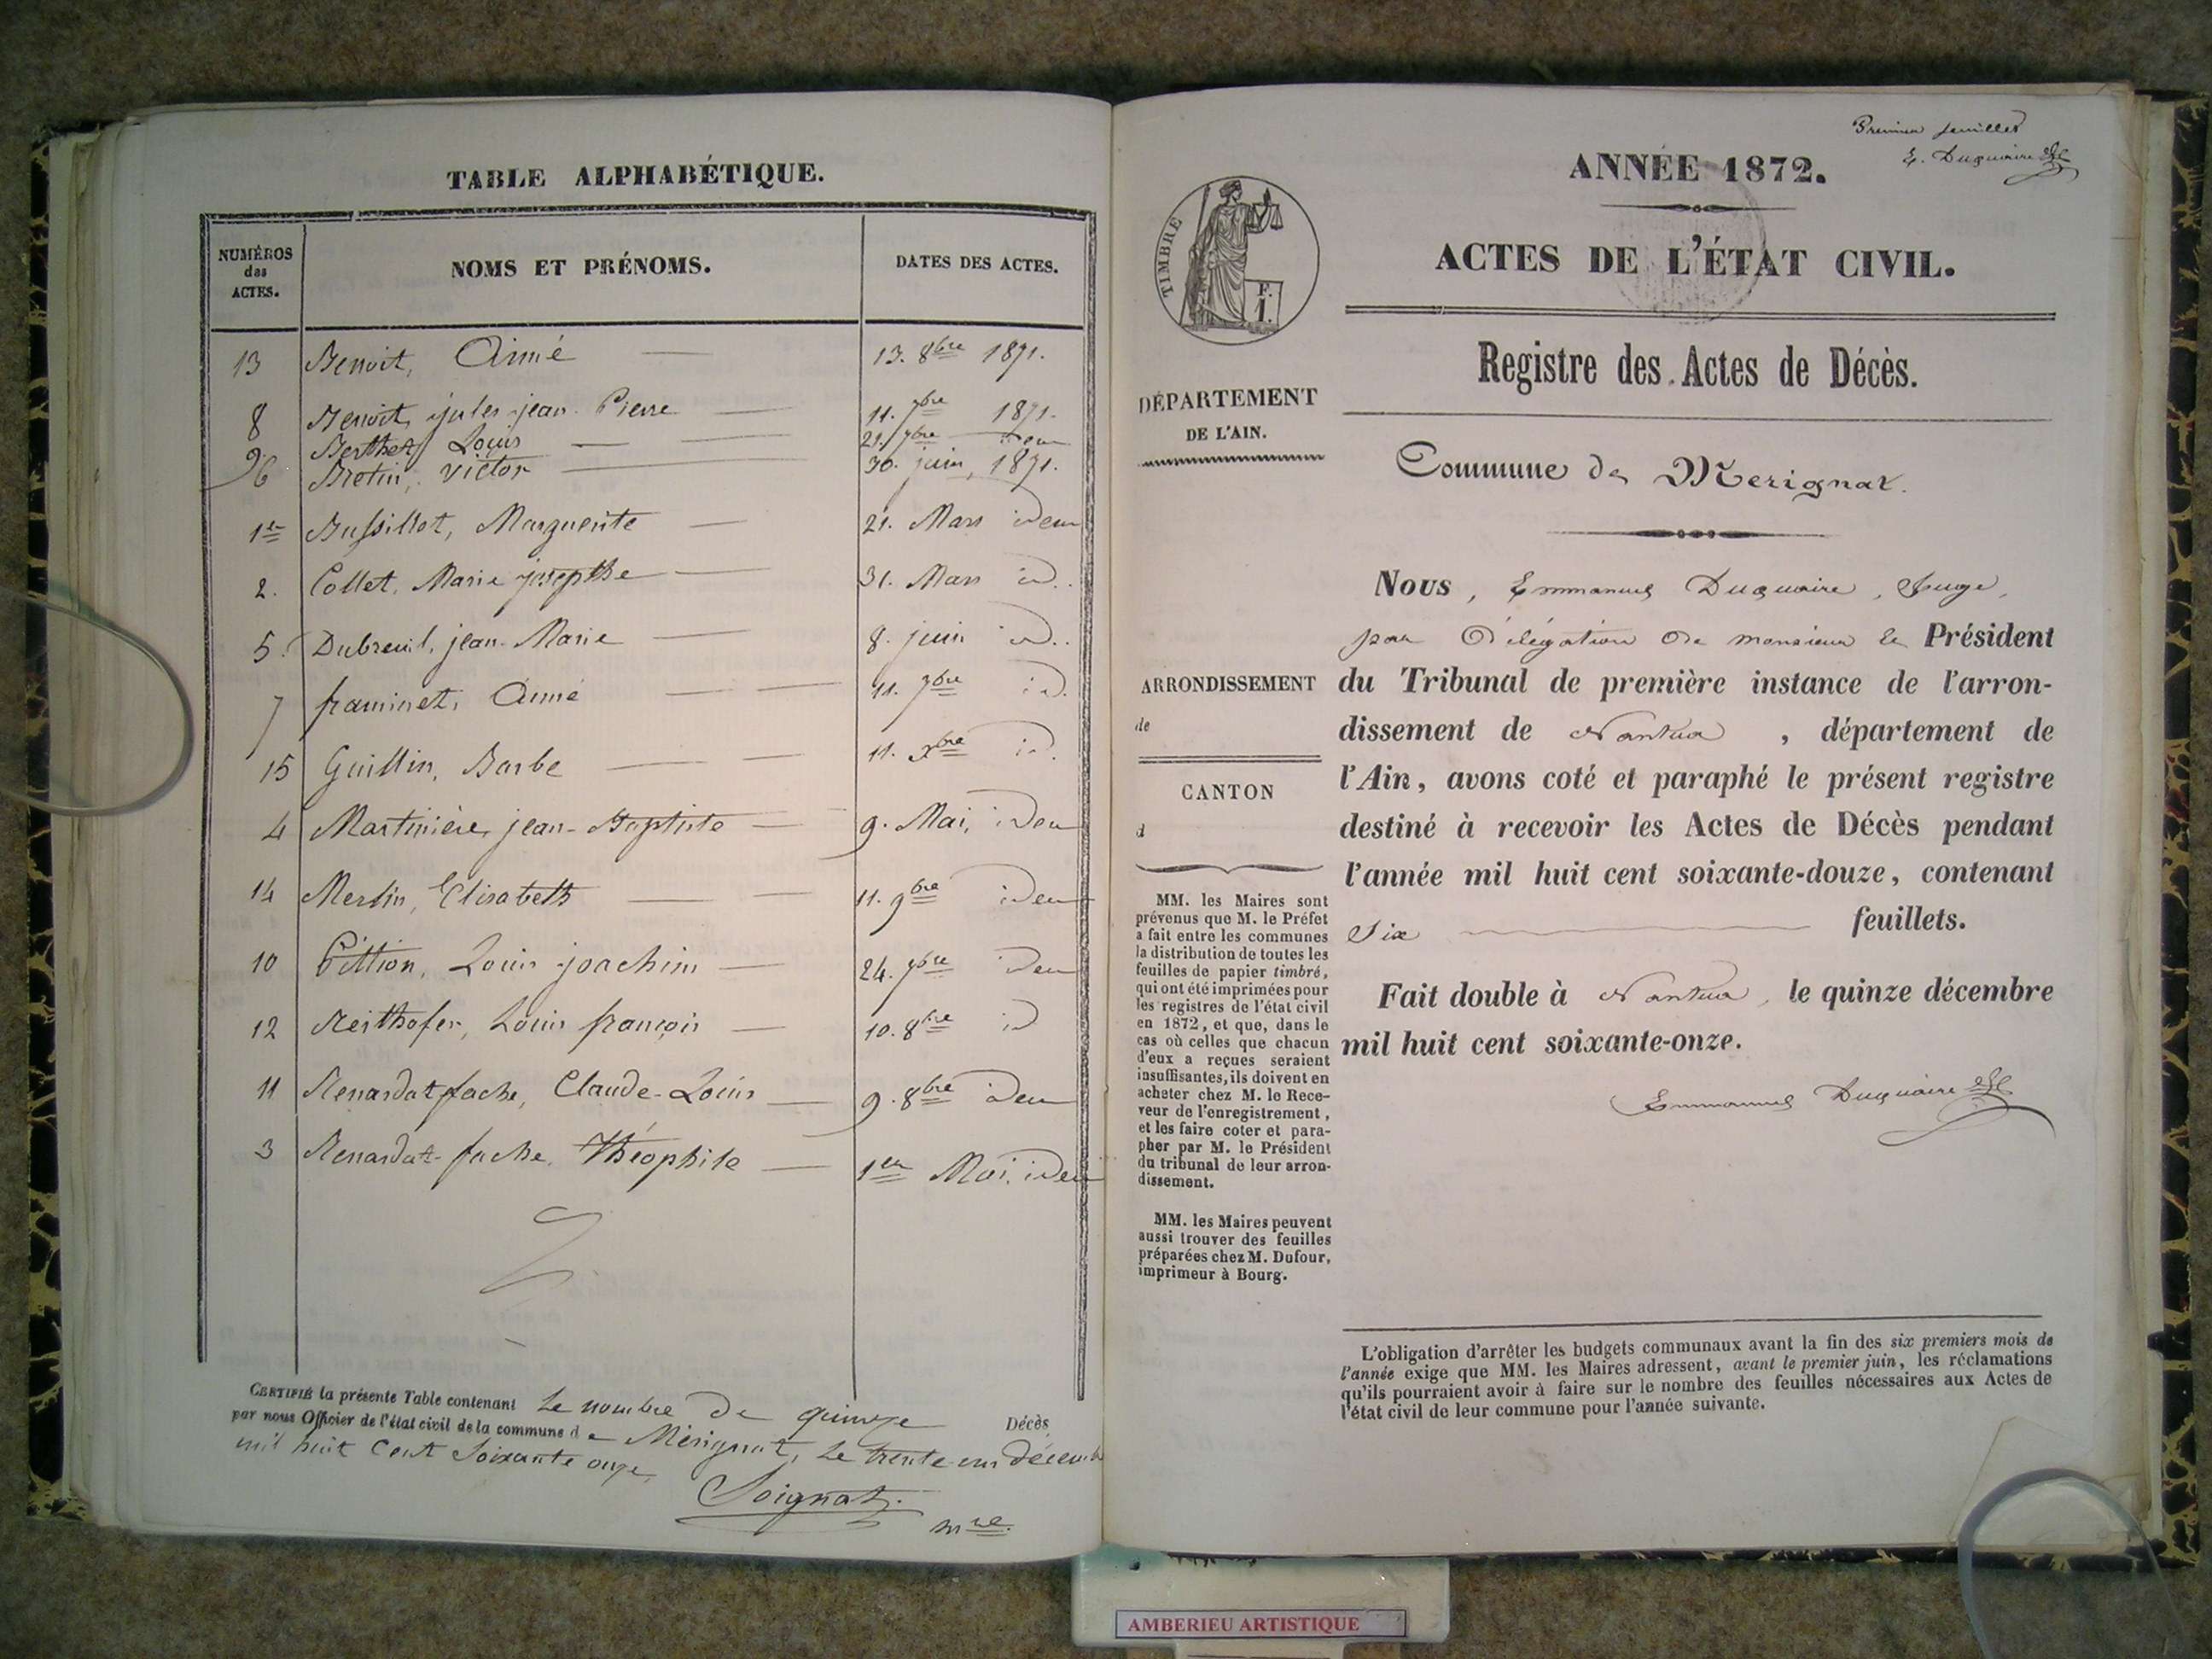 TABLE ALPHABÉTIQUE.
NUMÉROS des ACTES. NOMS ET PRÉNOMS. DATES DES ACTES.
13 Benoit, Aimé 13. 8bre 1871.
8 Benoit, jules jean-Pierre 11. 7bre 1871.
9 Berthet Louis 21. 7bre idem
6 Bretin, victor 30. juin, 1871.
1er Bussillet, Marguerite 21. Mars idem
2. Collet, Marie josepthe 31. Mars id..
5. Dubreuil, jean-Marie 8. juin id..
7 framinet, Aimé 11. 7bre id.
15 Guillin, Barbe 11. xbre id.
4 Martinière, jean-Baptiste 9. Mai, idem
14 Merlin, Elisabeth 11. 9bre idem
10 Pittion, Louis joachim 24. 7bre idem
12 Reithofer, Louis françois 10. 8bre id
11 Renardat fache, Claude-Louis 9. 8bre idem
3 Renardat-fache, Théophile 1er Mai, idem
CERTIFIÉ la présente Table contenant Le nombre de quinze Décès
par nous Officier de l'état civil de la commune de Mérignat, Le trente-un décembre
mil huit Cent Soixante onze,
Soignat.
mre.
Premier feuillet
E. Duquaire
ANNÉE 1872.
ACTES DE L'ÉTAT CIVIL.
TIMBRE
F.
1.
Registre des Actes de Décès.
DÉPARTEMENT
DE L'AIN.
Commune de Merignat.
Nous, Emmanuel Duquaire, Juge,
par Délégation de monsieur le Président
ARRONDISSEMENT
de
du Tribunal de première instance de l'arron-
dissement de Nantua, département de
CANTON
d
l'Ain, avons coté et paraphé le présent registre
destiné à recevoir les Actes de Décès pendant
l'année mil huit cent soixante-douze, contenant
Six feuillets.
Fait double à Nantua, le quinze décembre
mil huit cent soixante-onze.
Emmanuel Duquaire
MM. les Maires sont
prévenus que M. le Préfet
a fait entre les communes
la distribution de toutes les
feuilles de papier timbré,
qui ont été imprimées pour
les registres de l'état civil
en 1872, et que, dans le
cas où celles que chacun
d'eux a reçues seraient
insuffisantes, ils doivent en
acheter chez M. le Rece-
veur de l'enregistrement,
et les faire coter et para-
pher par M. le Président
du tribunal de leur arron-
dissement.
MM. les Maires peuvent
aussi trouver des feuilles
préparées chez M. Dufour,
imprimeur à Bourg.
L'obligation d'arrêter les budgets communaux avant la fin des six premiers mois de
l'année exige que MM. les Maires adressent, avant le premier juin, les réclamations
qu'ils pourraient avoir à faire sur le nombre des feuilles nécessaires aux Actes de
l'état civil de leur commune pour l'année suivante.
AMBERIEU ARTISTIQUE